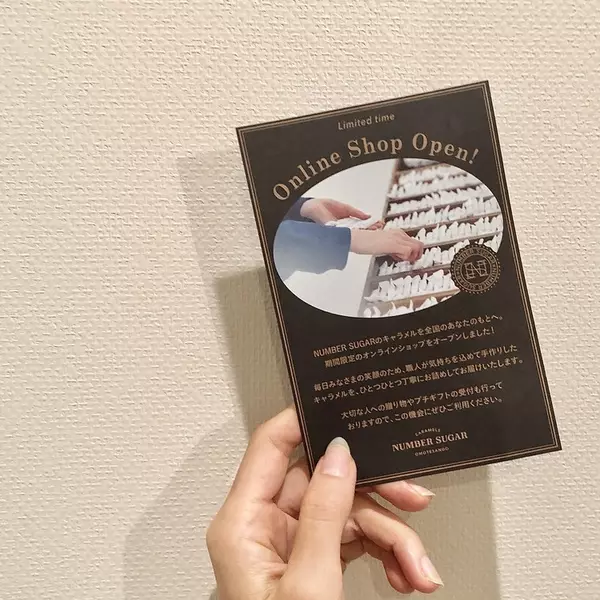 Limited time
Online Shop Open!
NUMBER SUGARのキャラメルを全国のあなたのもとへ。
期間限定のオンラインショップをオープンしました!
毎日みなさまの笑顔のため、職人が気持ちを込めて手作りした
キャラメルを、ひとつひとつ丁寧にお詰めしてお届けいたします。
大切な人への贈り物やプチギフトの受付も行って
おりますので、この機会にぜひご利用ください。
CARAMELS
NUMBER SUGAR
OMOTESANDO